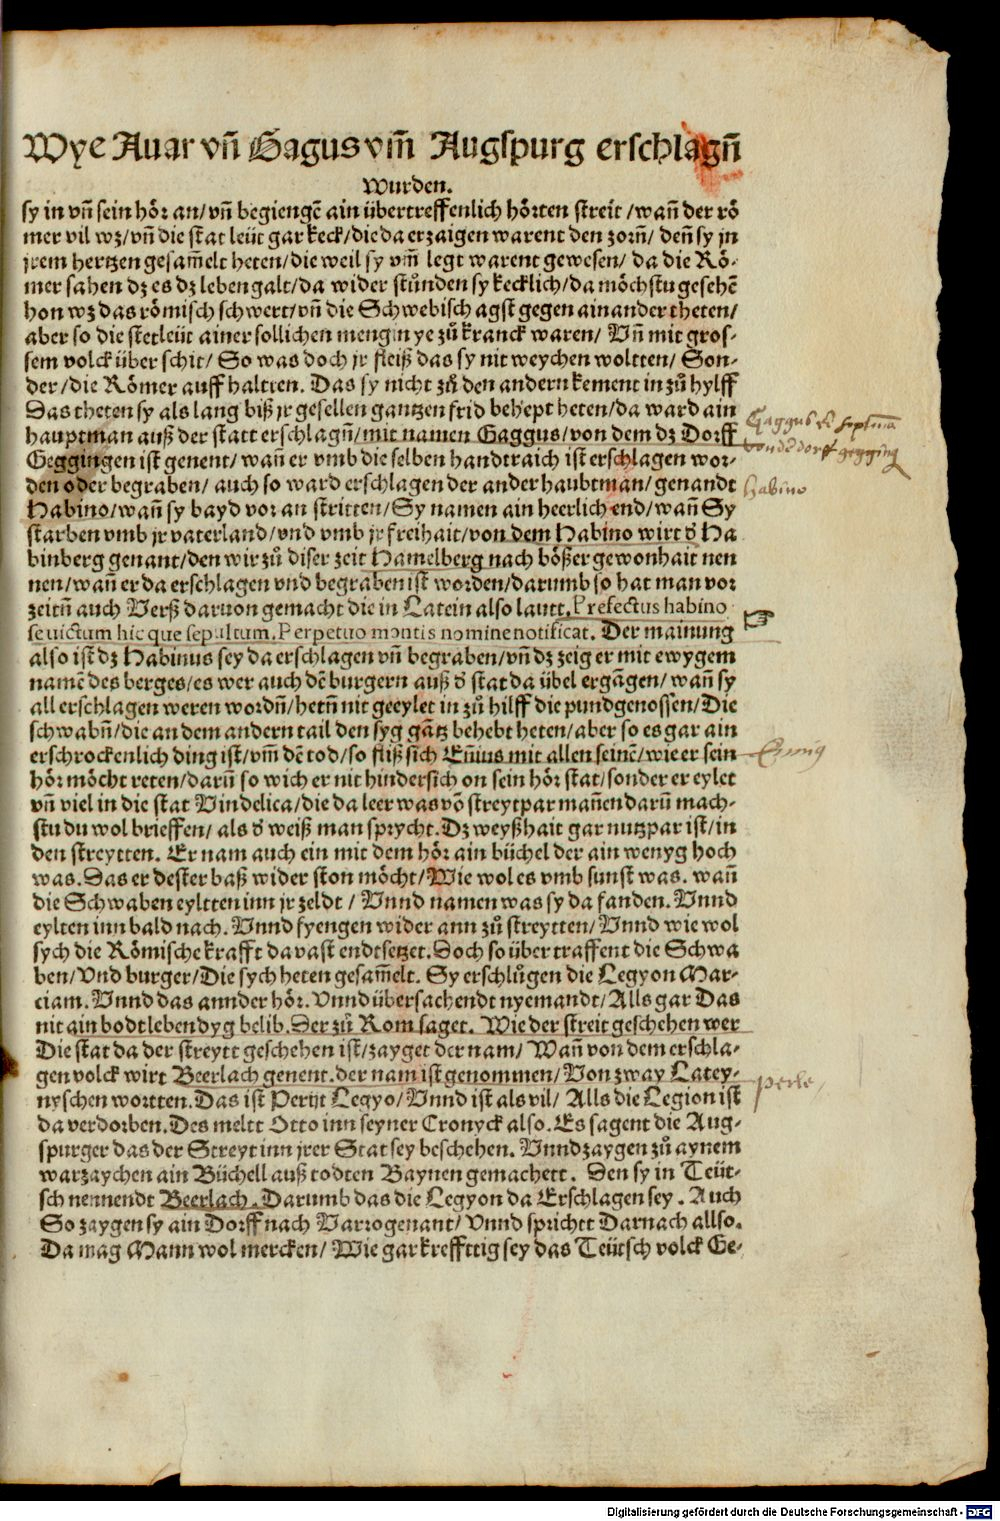 Wye Auar vn̄ Gagus vm̄ Augspurg erschlagn̄
wurden.
sy in vn̄ sein hör an/vn̄ begiengē ain übertreffenlich hörten streit/wan̄ der rö
mer vil wz/vn̄ die stat leüt gar keck/die da erzaigen warent den zorn̄/ den̄ sy jn
jrem hertzen gesam̄elt heten/die weil sy vm̄ legt warent gewesen/ da die Rö-
mer sahen dz es dz leben galt/da wider stůnden sy kecklich/da möchstu gesehē
hon wz das römisch schwert/vn̄ die Schwebisch agst gegen ain ander theten/
aber so die stetleüt ainer sollichen mengin ye zů kranck waren/ Vn̄ mit gros-
sem volck über schit/ So was doch jr fleiß das sy nit weychen woltten/ Son-
der/die Römer auff haltten. Das sy nicht zů den andern kement in zů hylff
Das theten sy als lang biß jr gesellen gantzen frid behept heten/da ward ain
hauptman auß der statt erschlagn̄/mit namen Gaggus/von dem dz Dorff
Geggingen ist genent/ wan̄ er vmb die selben handtraich ist erschlagen wor-
den oder begraben/ auch so ward erschlagen der ander haubtman/genandt
Habino/wan̄ sy bayd vor an stritten/Sy namen ain heerlich end/wan̄ Sy
starben vmb jr vaterland/vnd vmb jr freihait/von dem Habino wirt d̄ Ha
binberg genant/den wir zů diser zeit Hamelberg nach bößer gewonhait nen
nen/wan̄ er da erschlagen vnd begraben ist worden/darumb so hat man vor
zeitn̄ auch Verß daruon gemacht die in Latein also lautt. Prefectus habino
se uictum hic que sepultum. Perpetuo montis nomine notificat. Der mainung
also ist dz Habinus sey da erschlagen vn̄ begraben/vn̄ dz zeig er mit ewygem
namē des berges/es wer auch dē burgern auß d̄ stat da übel ergāgen/wan̄ sy
all erschlagen weren wordn̄/hetn̄ nit geeylet in zů hilff die pundgenossen/Die
schwabn̄/die an dem andern tail den syg gātz behebt heten/aber so es gar ain
erschrockenlich ding ist/vm̄ dē tod/so fliß sich En̄ius mit allen seinē/wie er sein
hör möcht reten/darn̄ so wich er nit hindersich on sein hör stat/sonder er eylet
vn̄ viel in die stat Vindelica/die da leer was vō streytpar man̄en darn̄ mach-
stu du wol brieffen/ als d̄ weiß man sprycht. Dz weyßhait gar nutzpar ist/in
den streytten. Er nam auch ein mit dem hör ain büchel der ain wenyg hoch
was. Das er dester baß wider ston möcht/Wie wol es vmb sunst was. wan̄
die Schwaben eyltten inn jr zeldt / Vnnd namen was sy da fanden. Vnnd
eylten inn bald nach. Vnnd fyengen wider ann zů streytten/Vnnd wie wol
sych die Römische krafft da vast endtsetzet. Doch so über traffent die Schwa
ben/Vnd burger/Die sych heten gesam̄elt. Sy erschlůgen die Legyon Mar-
ciam. Vnnd das annder hör. Vnnd übersachendt nyemandt/Alls gar Das
nit ain bodt lebendyg belib. Der zů Rom saget. Wie der streit geschehen wer
Die stat da der streytt geschehen ist/zayget der nam/ Wan̄ von dem erschla-
gen volck wirt Beerlach genent. der nam ist genommen/Von zway Latey-
nyschen wortten. Das ist Perijt Legyo/Vnnd ist als vil/ Alls die Legion ist
da verdorben. Des meltt Otto inn seyner Cronyck also. Es sagent die Aug-
spurger das der Streyt inn jrer Stat sey beschehen. Vnnd zaygen zů aynem
warzaychen ain Büchell auß todten Baynen gemachett. Den sy in Teüt-
sch nennendt Beerlach. Darumb das die Legyon da Erschlagen sey. Auch
So zaygen sy ain Dorff nach Varro genant/ Vnnd sprichtt Darnach allso.
Da mag Mann wol mercken/ Wie gar kreffttig sey das Teütsch volck Ge-
Habino
perle
Digitalisierung gefördert durch die Deutsche Forschungsgemeinschaft - DFG